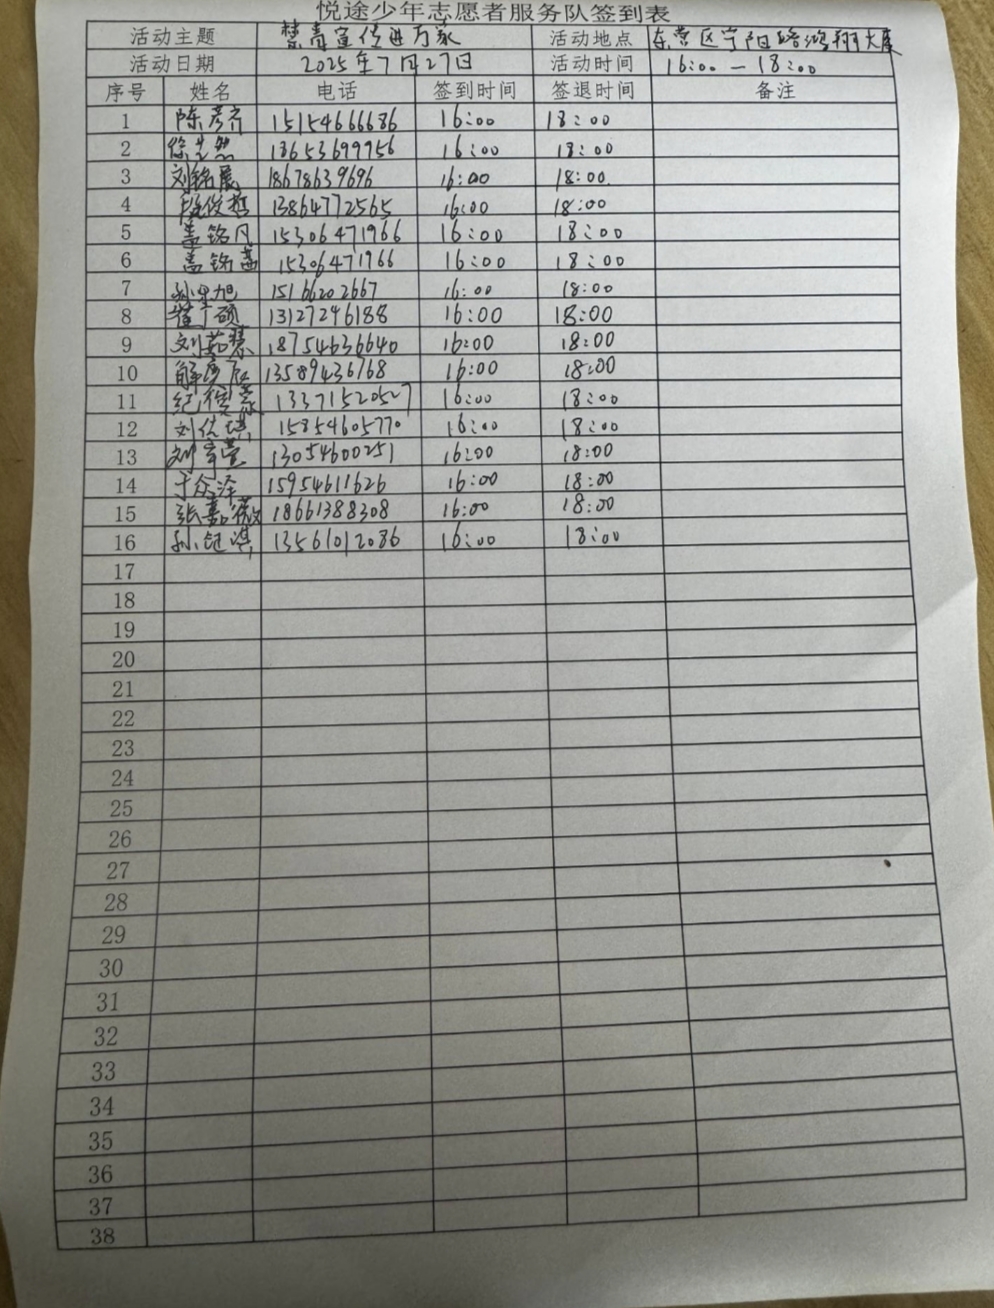 悦途少年志愿者服务队签到表
活动主题 禁毒宣传进万家 活动地点 东营区宁阳路鸿翔大厦
活动日期 2025年7月27日 活动时间 16:00-18:00
序号 姓名 电话 签到时间 签退时间 备注
1 陈彦齐 15154666686 16:00 18:00
2 18653699956 16:00 18:00
3 刘铭晨 18678639696 16:00 18:00
4 段俊哲 13864772565 16:00 18:00
5 盖铭凡 15306471966 16:00 18:00
6 盖铭茜 15306471966 16:00 18:00
7 15166202667 16:00 18:00
8 13127246188 16:00 18:00
9 18754636640 16:00 18:00
10 13589436768 16:00 18:00
11 13371520527 16:00 18:00
12 15854605770 16:00 18:00
13 13054600251 16:00 18:00
14 于众泽 15954611626 16:00 18:00
15 张嘉薇 18661388308 16:00 18:00
16 孙钰淇 13561012086 16:00 18:00
17
18
19
20
21
22
23
24
25
26
27
28
29
30
31
32
33
34
35
36
37
38